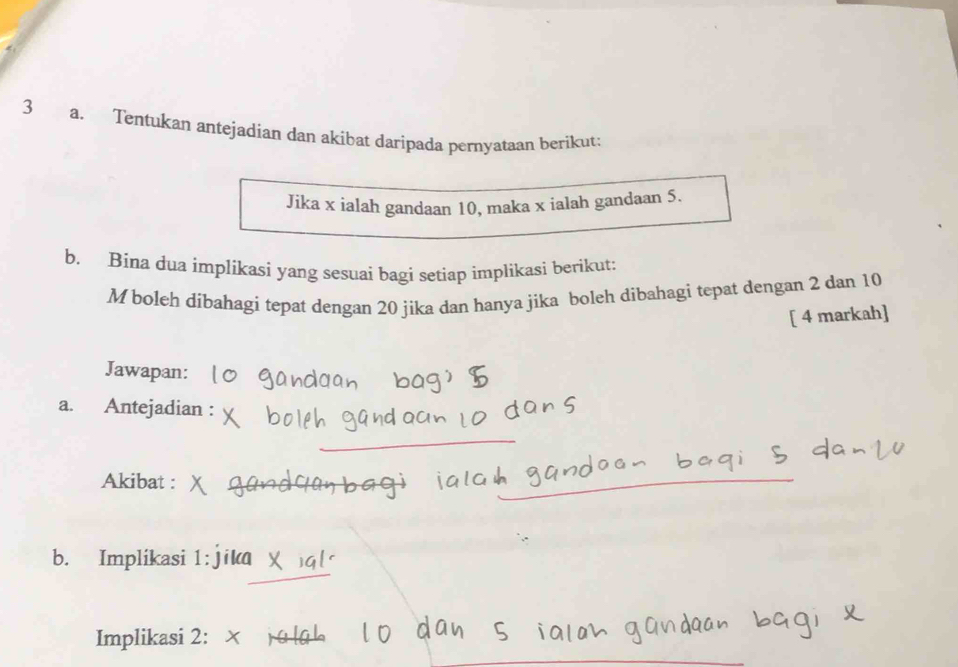 3 a. Tentukan antejadian dan akibat daripada pernyataan berikut:
Jika x ialah gandaan 10, maka x ialah gandaan 5.
b. Bina dua implikasi yang sesuai bagi setiap implikasi berikut:
M boleh dibahagi tepat dengan 20 jika dan hanya jika boleh dibahagi tepat dengan 2 dan 10
[ 4 markah]
Jawapan: 10 gandaan bagi 5
a. Antejadian : X boleh gandaan 10 dan 5
Akibat : X gandaan bagi ialah gandaan bagi 5 dan
b. Implikasi 1: jika X
Implikasi 2: x ialah 10 dan 5 ialah gandaan bagi x